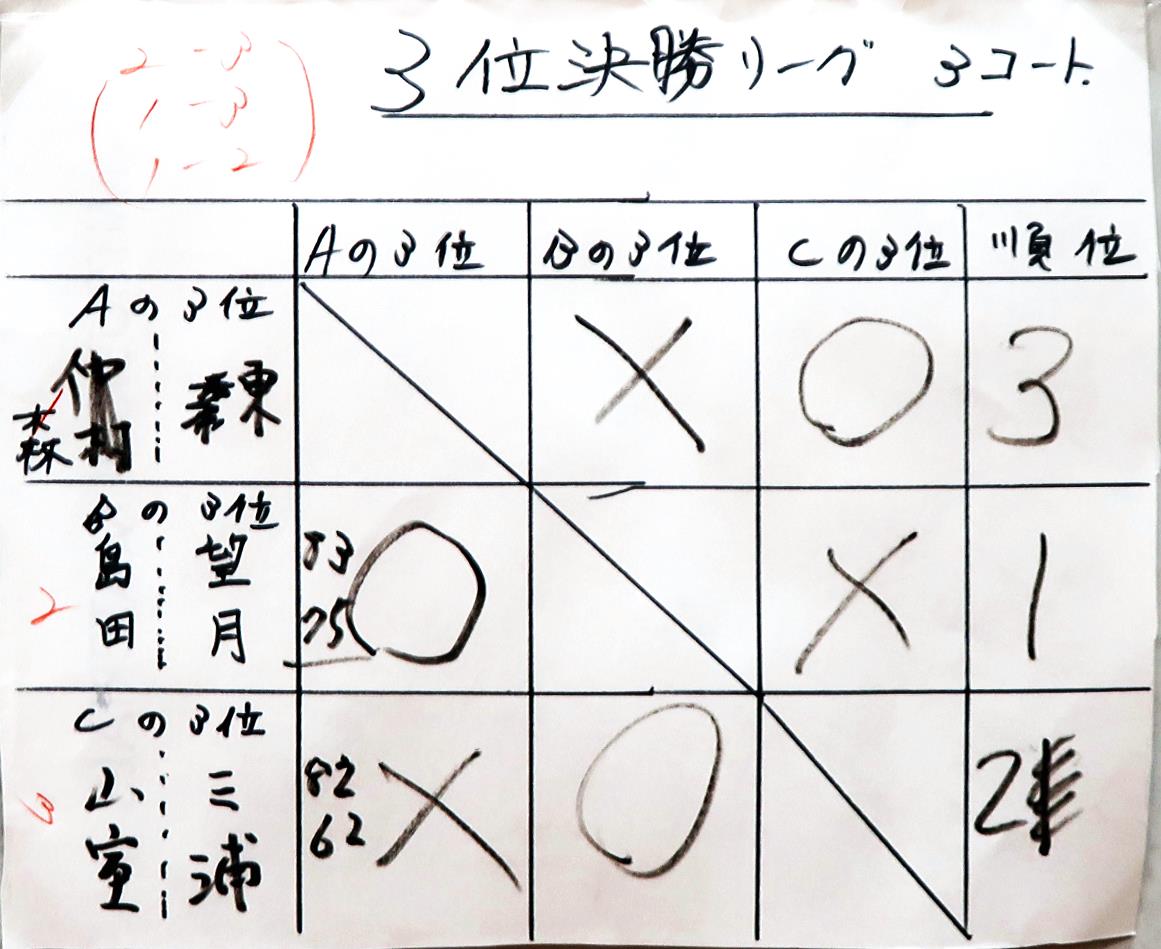 3位決勝リーグ 3コート
2-3
1-3
1-2
Aの3位 Bの3位 Cの3位 順位
Aの3位
森 東
× ○ 3
Bの3位
島田 望月
2
83
75
○ × 1
Cの3位
山室 三浦
3
82
62
× ○ 2